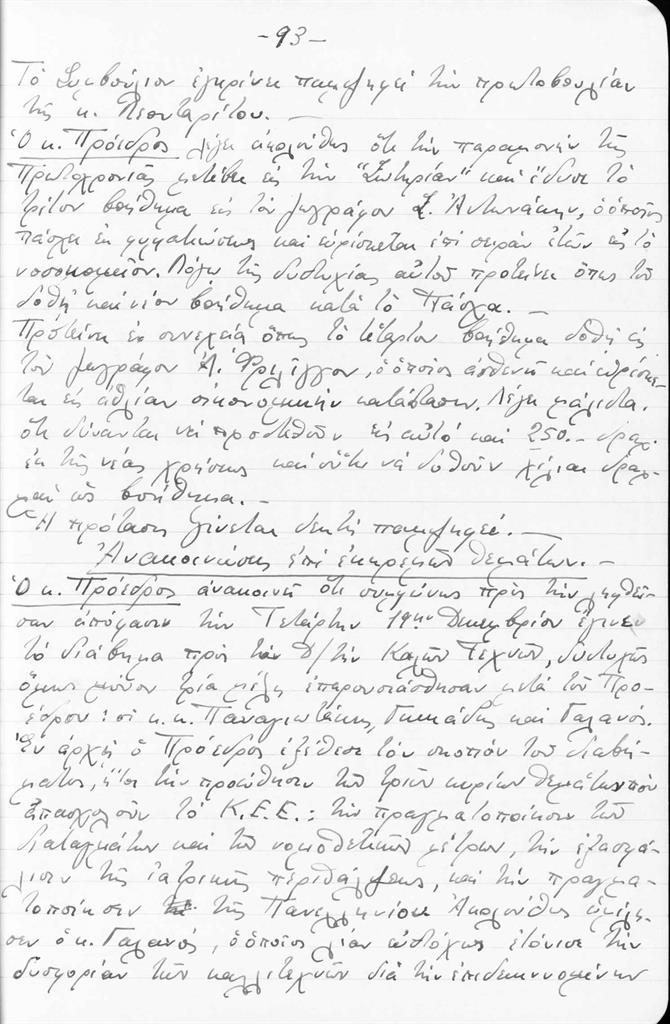 -93-
Τὸ Συμβούλιον ἐγκρίνει παμψηφεὶ τὴν πρωτοβουλίαν
τῆς κ. Λεονταρίτου. —
Ὁ κ. Πρόεδρος λέγει ἀκολούθως ὅτι τὴν παραμονὴν τῆς
Πρωτοχρονιᾶς μετέβη εἰς τὴν "Σωτηρίαν" καὶ ἔδωσε τὸ
τρίτον βοήθημα εἰς τὸν ζωγράφον Σ. Ἀντωνάκην, ὁ ὁποῖος
πάσχει ἐκ φυματιώσεως καὶ εὑρίσκεται ἐπὶ σειρὰν ἐτῶν εἰς τὸ
νοσοκομεῖον. Λόγῳ τῆς δυστυχίας αὐτοῦ προτείνει ὅπως τοῦ
δοθῇ καὶ νέον βοήθημα κατὰ τὸ Πάσχα. —
Προτείνει ἐν συνεχείᾳ ὅπως τὸ τέταρτον βοήθημα δοθῇ εἰς
τὸν ζωγράφον Ἀ. Φριλίγγον, ὁ ὁποῖος ἀσθενεῖ καὶ εὑρίσκε-
ται εἰς ἀθλίαν οἰκονομικὴν κατάστασιν. Λέγει μάλιστα
ὅτι δύνανται νὰ προστεθοῦν εἰς αὐτὸ καὶ 250.— δραχ.
ἐκ τῆς νέας χρήσεως καὶ οὕτω νὰ δοθοῦν χίλιαι δραχ-
μαὶ ὡς βοήθημα. —
Ἡ πρότασις γίνεται δεκτὴ παμψηφεί. —
Ἀνακοινώσεις ἐπὶ ἐκκρεμῶν θεμάτων. —
Ὁ κ. Πρόεδρος ἀνακοινεῖ ὅτι συμφώνως πρὸς τὴν ληφθεῖ-
σαν ἀπόφασιν τὴν Τετάρτην 19ην Δεκεμβρίου ἔγινεν
τὸ διάβημα πρὸς τὸν Δ/τὴν Καλῶν Τεχνῶν, δυστυχῶς
ὅμως μόνον τρία μέλη ἐπαρουσιάσθησαν μετὰ τοῦ Προ-
έδρου: οἱ κ.κ. Παναγιωτάκης, Γκικάδης καὶ Γαλανός.
Ἐν ἀρχῇ ὁ Πρόεδρος ἐξέθεσε τὸν σκοπὸν τοῦ διαβή-
ματος, ἤτοι τὴν προώθησιν τῶν τριῶν κυρίων θεμάτων ποὺ
ἀπασχολοῦν τὸ Κ.Ε.Ε.: τὴν πραγματοποίησιν τῶν
διαταγμάτων καὶ τῶν νομοθετικῶν μέτρων, τὴν ἐξασφά-
λισιν τῆς ἰατρικῆς περιθάλψεως, καὶ τὴν πραγμα-
τοποίησιν τῆς Πανελληνίου. Ἀκολούθως ὡμίλη-
σεν ὁ κ. Γαλανός, ὁ ὁποῖος λίαν εὐστόχως ἐτόνισε τὴν
δυσφορίαν τῶν καλλιτεχνῶν διὰ τὴν ἐπιδεικνυομένην